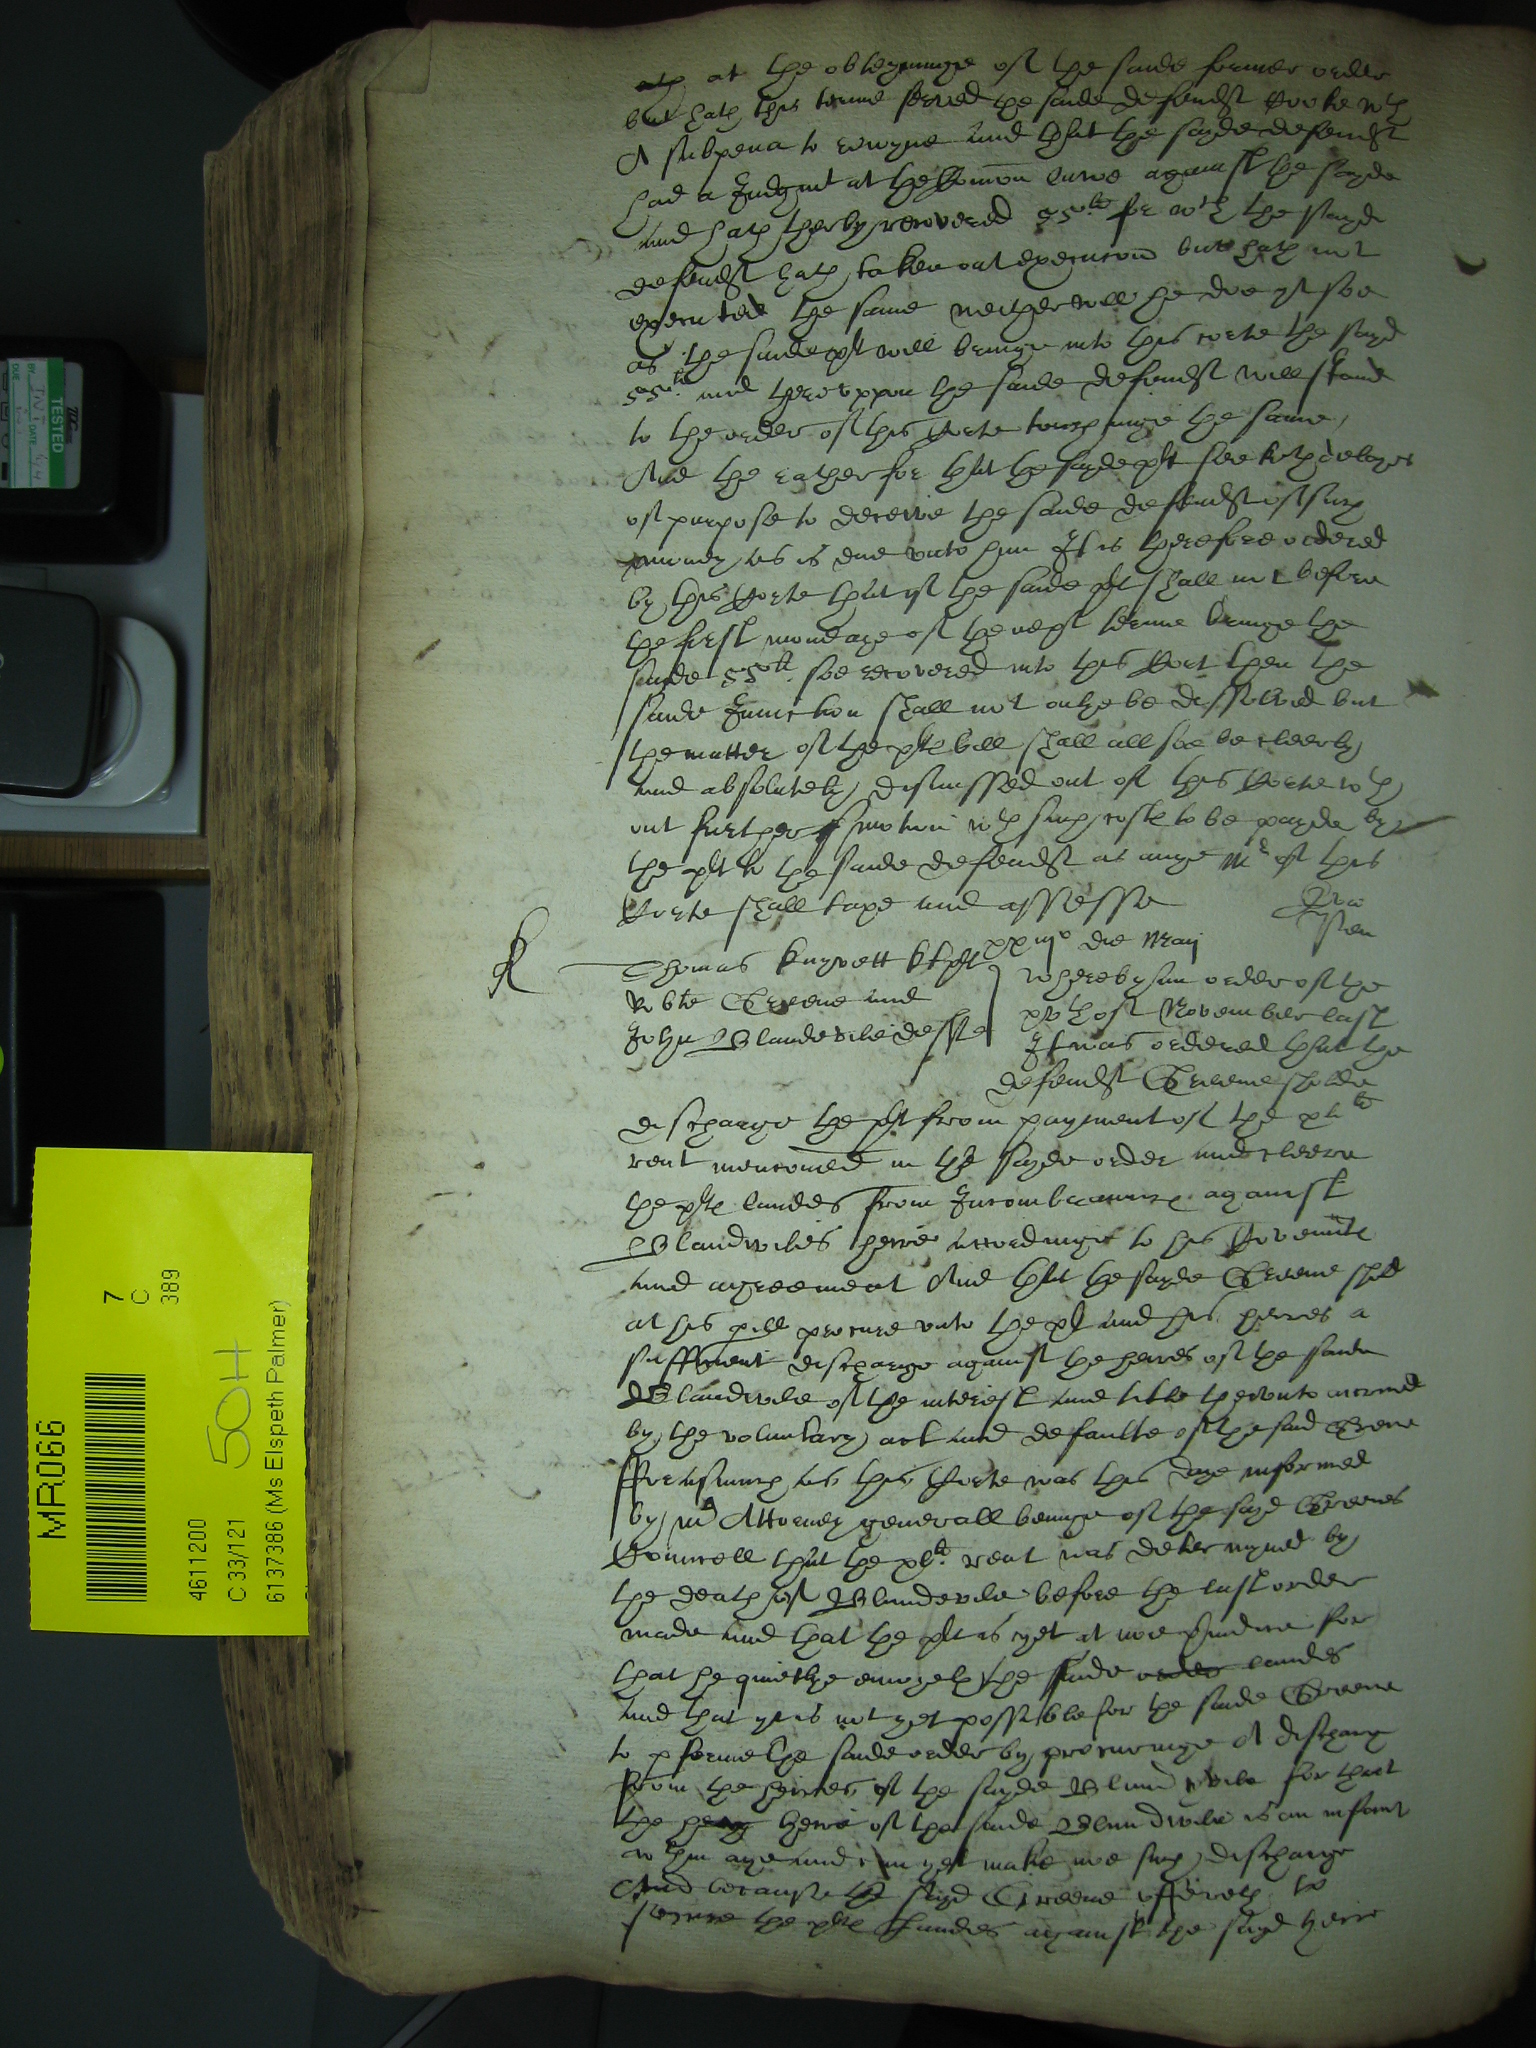 oth at the obteyninge of the saide former order
but hath this terme served the saide defendt Cooke wth
A subpena to reioyne And that the sayde defendt
had a Judgmt at the Comon lawe against the sayde
and hath therby recovered 55li for wch the sayde
defendt hath taken out execucion but hath not
executed the same neither will he doe yt soe
as the saide plt will bringe into this corte the sayd
55li and thereuppon the saide defendt will stande
to the order of this Corte touchinge the same,
And the rather for that the sayde plt seeketh delayes
of purpose to deceive the saide defendt of such
money as is due unto him It is therefore ordered
by this Corte that yf the saide plt shall not before
the first mondaye of the next terme bringe the
saide 55li soe recovered into this Cort then the
saide Iniunction shall not onlye be dissolved but
the matter of the plts bill shall allsoe be cleerly
and absolutely dismissed out of this Corte wth
out further motion wth such costs to be payde by
the plt to the saide defendt as anye Mr of this
Corte shall taxe and assesse
xxiijo die Maij
R
Thomas Knyvett kt plt
Robte Greene and
John Blundevile defts
Whereby an order of the
xvth of November last
It was ordered that the
defendt Greene sholde
discharge the plt from payment of the xli
rent mencioned in the sayde order and cleere
the plts landes from Incombraunces against
Blundviles heire accordinge to his Covennts
and agreement And that the sayde Greene shold
at his perill procure unto the plt and his heires a
sufficient discharge against the heires of the saide
Blundvile of the interest and title therunto accrued
by the voluntary act and defaulte of the said Grene
Forasmuch as this Corte was this daye informed
by Mr Attorney generall beinge of the sayd Greenes
Councell that the xli rent was determyned by
the death of Blundevile before the last order
made and that the plt is yet at noe preiudice for
that he quietlye enioyeth the saide landes
and that yt is not yet possible for the saide Greene
to performe the saide order by procuringe A discharg
from the heires of the sayde Blundvile for that
the heire of the saide Blundvile is an infant
wthin age and can yet make noe such discharge
And because the sayd Greene offereth to
secure the plts landes against the sayd heire
MR066
7
C
389
4611200
C 33/121
50H
6137386 (Ms Elspeth Palmer)
TESTED